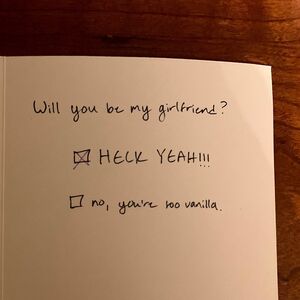 Will you be my girlfriend?
☒ HECK YEAH!!!
☐ no, you're too vanilla.